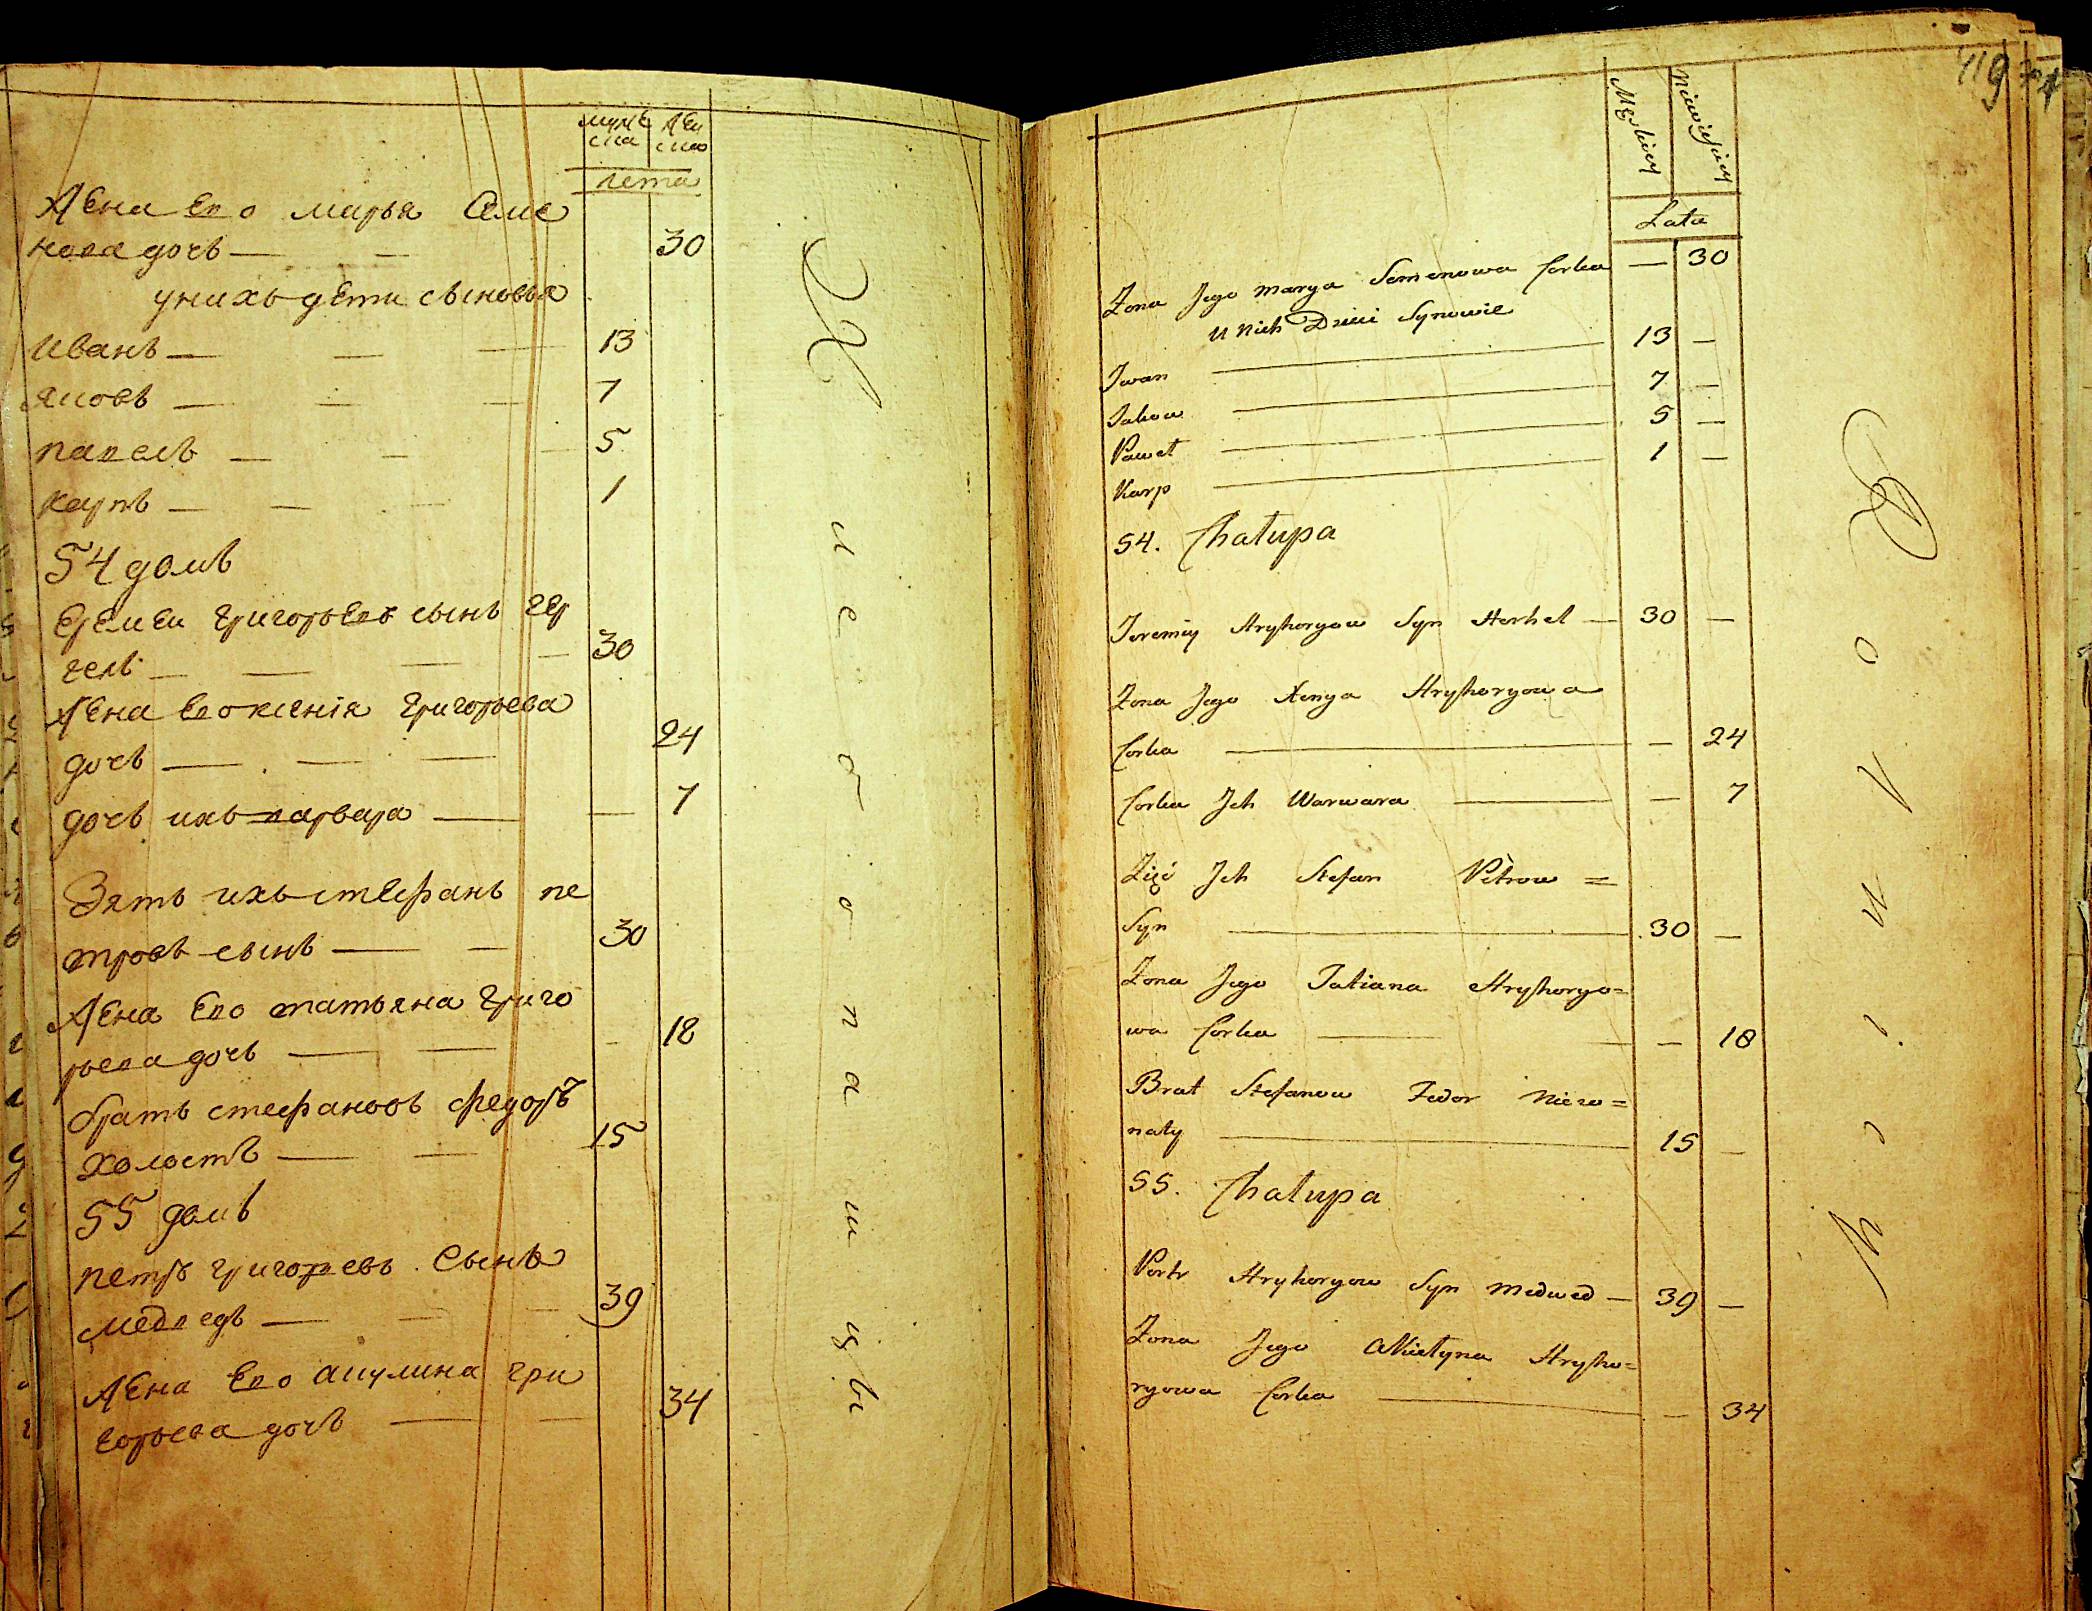 мужеска женска
лета
жена Ево марья Семе
нова дочь — — 30
у нихъ дети сыновья
иванъ — — — 13
яковъ — — — 7
павелъ — — — 5
карпъ — — — 1
54 домъ
Еремеи григорьевъ сынъ гер
гель — — — — 30
жена Ево ксенія григорьева
дочь — — — 24
дочь ихъ варвара — — 7
Зять ихъ стефанъ пе
тровъ сынъ — — 30
жена Ево татьяна григо
рьева дочь — — - 18
братъ стефановъ федоръ
холостъ — — — 15
55 домъ
петръ григорьевъ Сынъ
медведь — — — 39
жена Ево акулина гри
горьева дочь — — 34
119
Męzkiey Niewieściey
Lata
Żona Jego Marya Semenowa Corka — 30
U Nich Dzieci Synowie
Jwan — 13 —
Jakow — 7 —
Paweł — 5 —
Karp — 1 —
54. Chałupa
Jeremiy Hryhoryow Syn Herhel — 30 —
Żona Jego Xenya Hryhoryowa
Corka — — 24
Corka Jch Warwara — — 7
Zięć Jch Stefan Petrow =
Syn — 30 —
Żona Jego Tatiana Hryhoryo=
wa Corka — — — 18
Brat Stefanow Fedor Nieżo=
naty — 15 —
55. Chałupa
Piotr Hryhoryow Syn Medwed — 39 —
Żona Jego Akulyna Hryho=
ryowa Corka — — 34